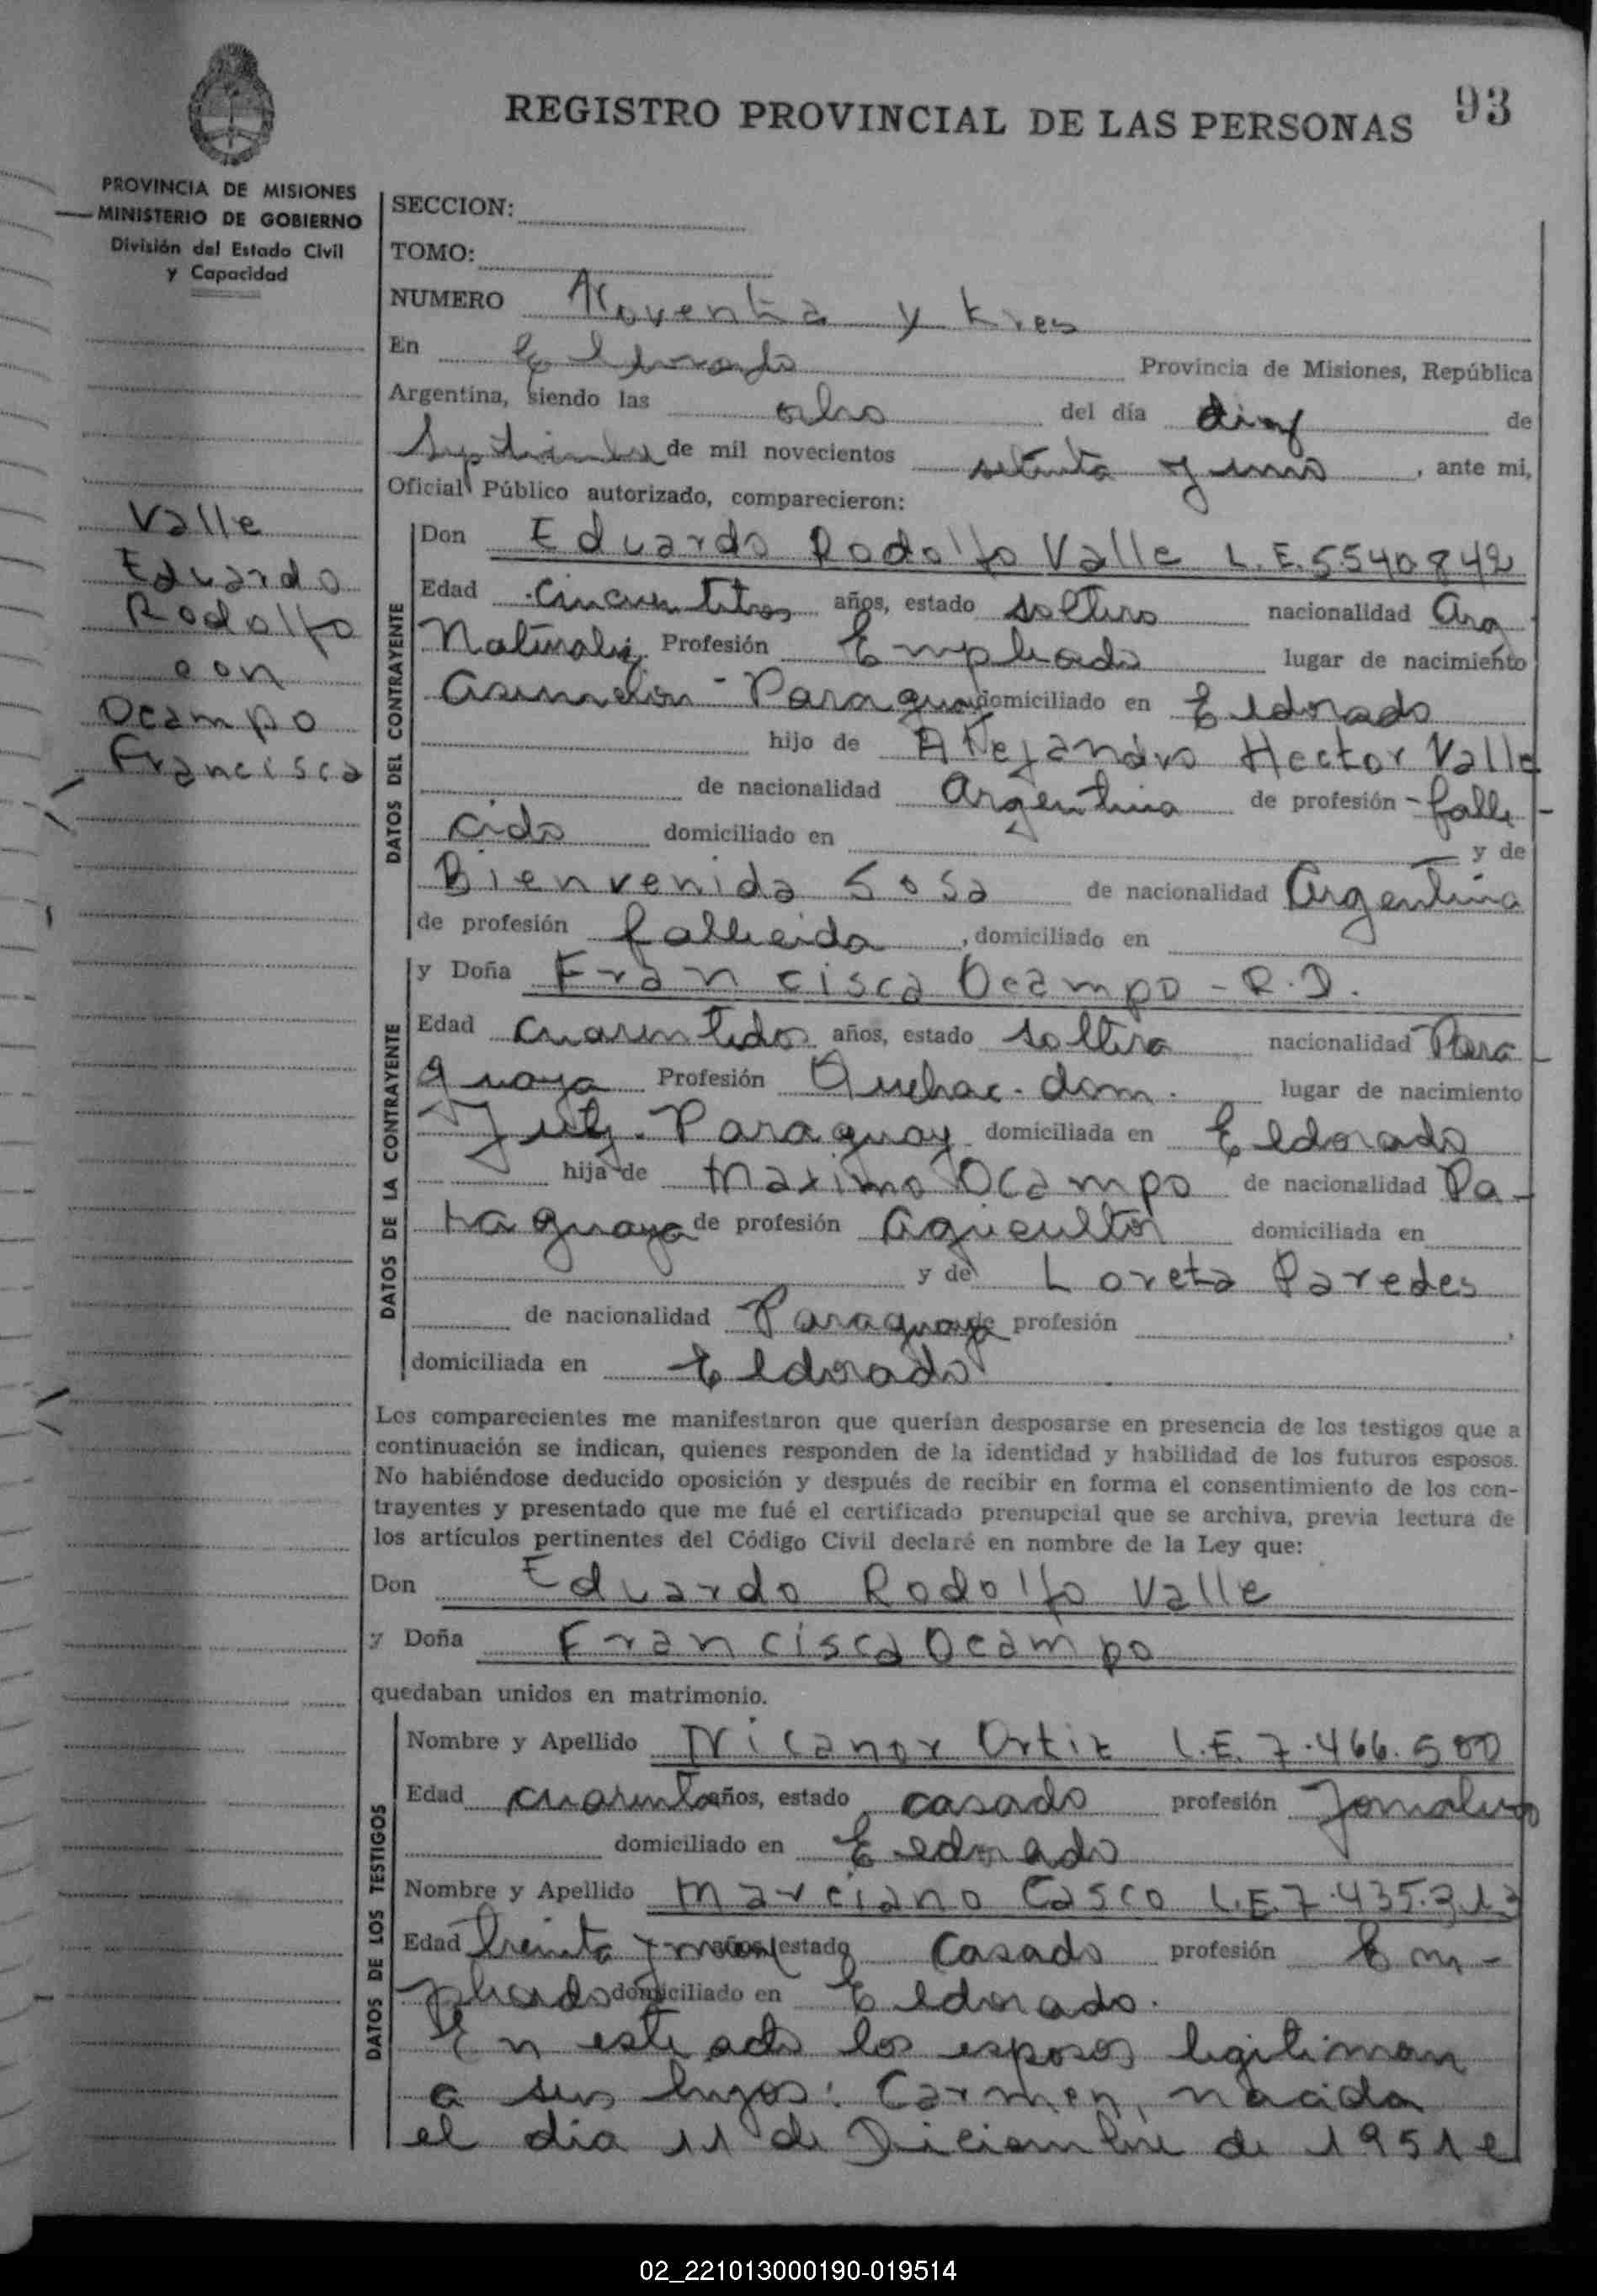 REGISTRO PROVINCIAL DE LAS PERSONAS 93
PROVINCIA DE MISIONES
MINISTERIO DE GOBIERNO
División del Estado Civil
y Capacidad
Valle
Eduardo
Rodolfo
con
Ocampo
Francisca
SECCION:
TOMO:
NUMERO Noventa y tres
En Eldorado Provincia de Misiones, República
Argentina, siendo las ocho del día diez de
Septiembre de mil novecientos setenta y uno, ante mi,
Oficial Público autorizado, comparecieron:
DATOS DEL CONTRAYENTE
Don Eduardo Rodolfo Valle L.E. 5.540.842
Edad cincuentitres años, estado soltero nacionalidad Arg
Naturaliz. Profesión Empleado lugar de nacimiento
Asunción - Paraguay domiciliado en Eldorado
hijo de Alejandro Hector Valle
de nacionalidad Argentina de profesión - falle-
cido domiciliado en y de
Bienvenida Sosa de nacionalidad Argentina
de profesión fallecida, domiciliado en
DATOS DE LA CONTRAYENTE
y Doña Francisca Ocampo - R.D.
Edad cuarentidos años, estado soltera nacionalidad Para-
guaya Profesión Quehac. dom. lugar de nacimiento
Yuty. Paraguay domiciliada en Eldorado
hija de Maximo Ocampo de nacionalidad Pa-
raguaya de profesión agricultor domiciliada en
y de Loreta Paredes
de nacionalidad Paraguaya de profesión ,
domiciliada en Eldorado
Los comparecientes me manifestaron que querían desposarse en presencia de los testigos que a
continuación se indican, quienes responden de la identidad y habilidad de los futuros esposos.
No habiéndose deducido oposición y después de recibir en forma el consentimiento de los con-
trayentes y presentado que me fué el certificado prenupcial que se archiva, previa lectura de
los artículos pertinentes del Código Civil declaré en nombre de la Ley que:
Don Eduardo Rodolfo Valle
y Doña Francisca Ocampo
quedaban unidos en matrimonio.
DATOS DE LOS TESTIGOS
Nombre y Apellido Nicanor Ortiz L.E. 7.466.500
Edad cuarenta años, estado casado profesión Jornalero
domiciliado en Eldorado
Nombre y Apellido Marciano Casco L.E. 7.435.313
Edad treinta y nueve años, estado Casado profesión Em-
pleado domiciliado en Eldorado.
En este acto los esposos legitiman
a sus hijos: Carmen, nacida
el día 11 de Diciembre de 1951 e
02_221013000190-019514